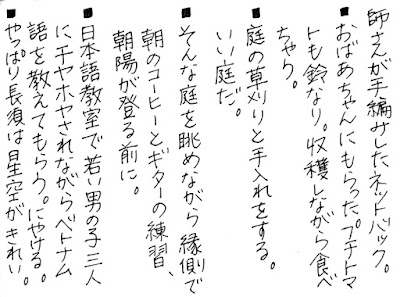 師さえが手編みしたネットバック。
■おばあちゃんにもらったプチトマ
トも鈴なり。収穫しながら食べ
ちゃう。
■庭の草刈りと手入れをする。
いい庭だ。
■そんな庭を眺めながら縁側で
朝のコーヒーとギターの練習、
朝陽が登る前に。
■日本語教室で若い男の子三人
に、チヤホヤされながらベトナム
語を教えてもらう。にやける。
■やっぱり長須は星空がきれい。